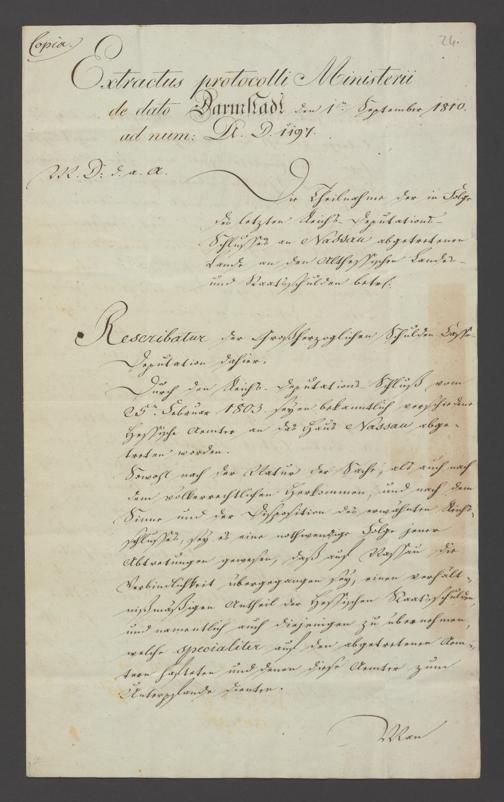 Copia.
24.
Extractus protocolli Ministerii
de dato Darmstadt den 1n September 1810.
ad num: R. D. 1197.
M. D: d. a. A.
Die Theilnahme der in Folge
des letzten Reichs-Deputations-
Schlusses an Nassau abgetretenen
Lande an den Althessischen Landes-
und Staatsschulden betr.
Rescribatur der Großherzoglichen Schulden Casse
Deputation dahier.
Durch den Reichs-Deputations Schluß vom
25n Februar 1803 seyen bekanntlich verschiedene
Hessische Aemter an das Haus Nassau abge-
treten worden.
Sowohl nach der Natur der Sache, als auch nach
dem völkerrechtlichen Herkommen, und nach dem
Sinne und der Disposition des erwähnten Reichs-
schlusses, sey es eine nothwendige Folge jener
Abtretungen gewesen, daß auf Nassau die
Verbindlichkeit übergegangen sey, einen verhält-
nißmäßigen Antheil der Hessischen Staatsschulden,
und namentlich auch diejenigen zu übernehmen,
welche specialiter auf den abgetretenen Aem-
tern hafteten und denen diese Aemter zum
Unterpfande dienten.
Man